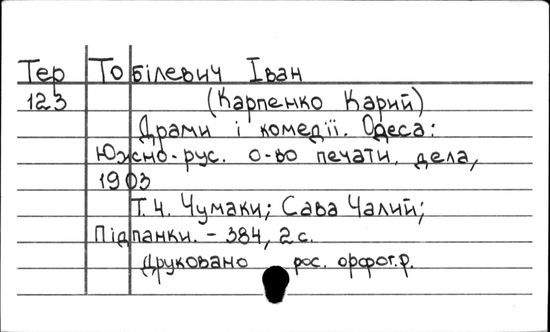 Тер Тобілевич Іван
123 (Карпенко Карий)
Драми і комедії. Одеса:
Южно-рус. о-во печати. дела,
1903
Т. 4. Чумаки; Сава Чалий;
Підпанки. - 384, 2 с.
Друковано рос. орфогр.